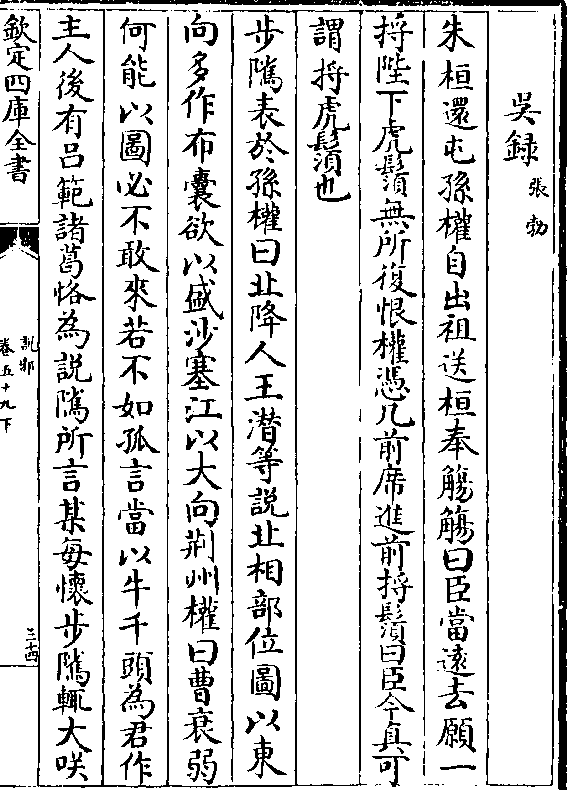 吳録張勃
朱桓還屯孫權自出祖送桓奉觴觴曰臣當逺去願一
捋陛下虎鬚無所復恨權憑几前席進前捋鬚曰臣今真可
謂捋虎鬚也
步隲表於孫權曰北降人王潜等說北相部位圖以東
向多作布囊欲以盛沙塞江以大向荆州權曰曹衰弱
何能以圖必不敢來若不如孤言當以牛千頭為君作
主人後有吕範諸葛恪為説隲所言某每懷步隲輒大咲
欽定四庫全書
説郛
卷五十九下
三十四